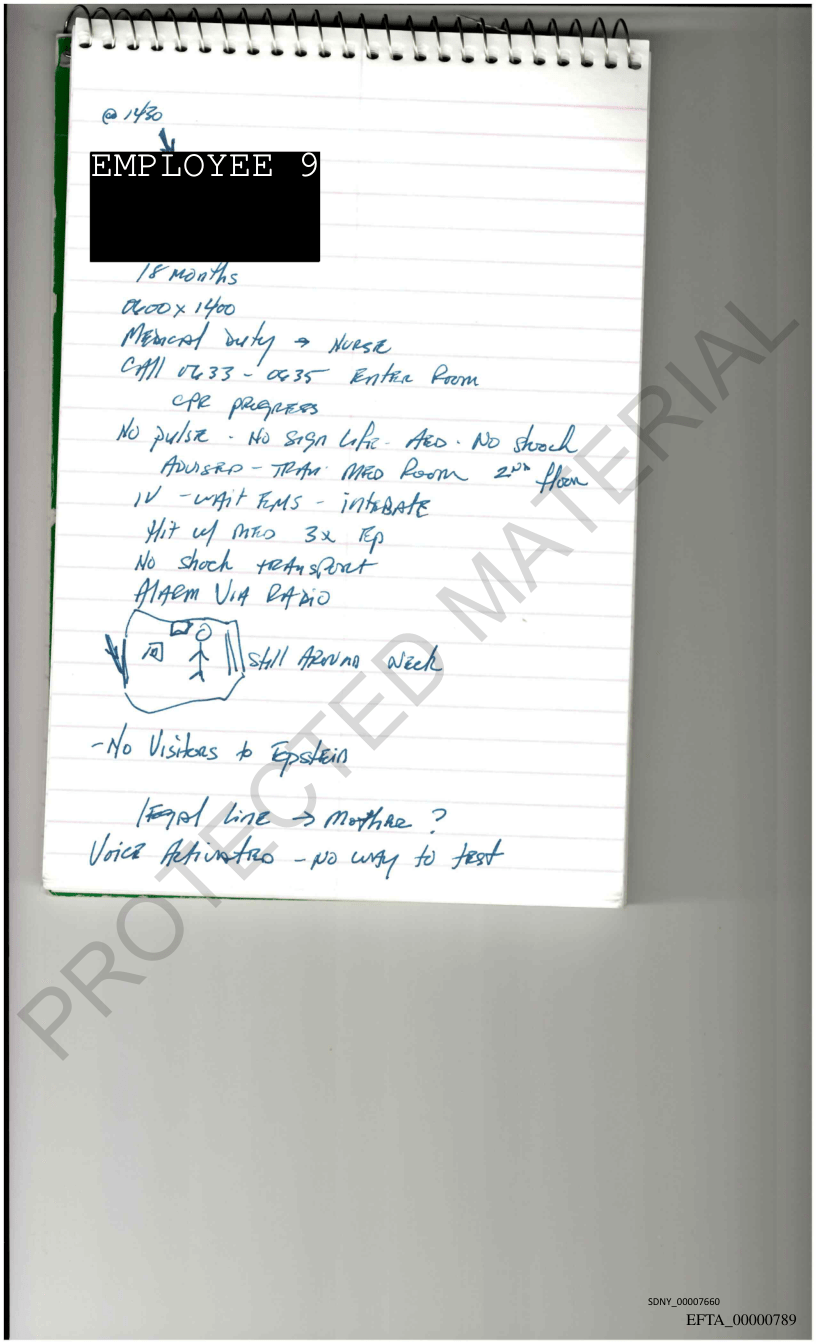 @ 1430
EMPLOYEE 9
18 Months
0600 x 1400
Medical Duty → Nurse
Call 0633 - 0635 Enter Room
CPR progress
No pulse - No sign Life - AED - No shock
Advised - Tran Med Room 2nd floor
IV - wait EMS - intubate
Hit w/ med 3x Ep
No shock transport
Alarm Via Radio
Still Around Neck
- No Visitors to Epstein
legal line → Mother ?
Voice Activated - No way to test
PROTECTED MATERIAL
SDNY_00007660
EFTA_00000789